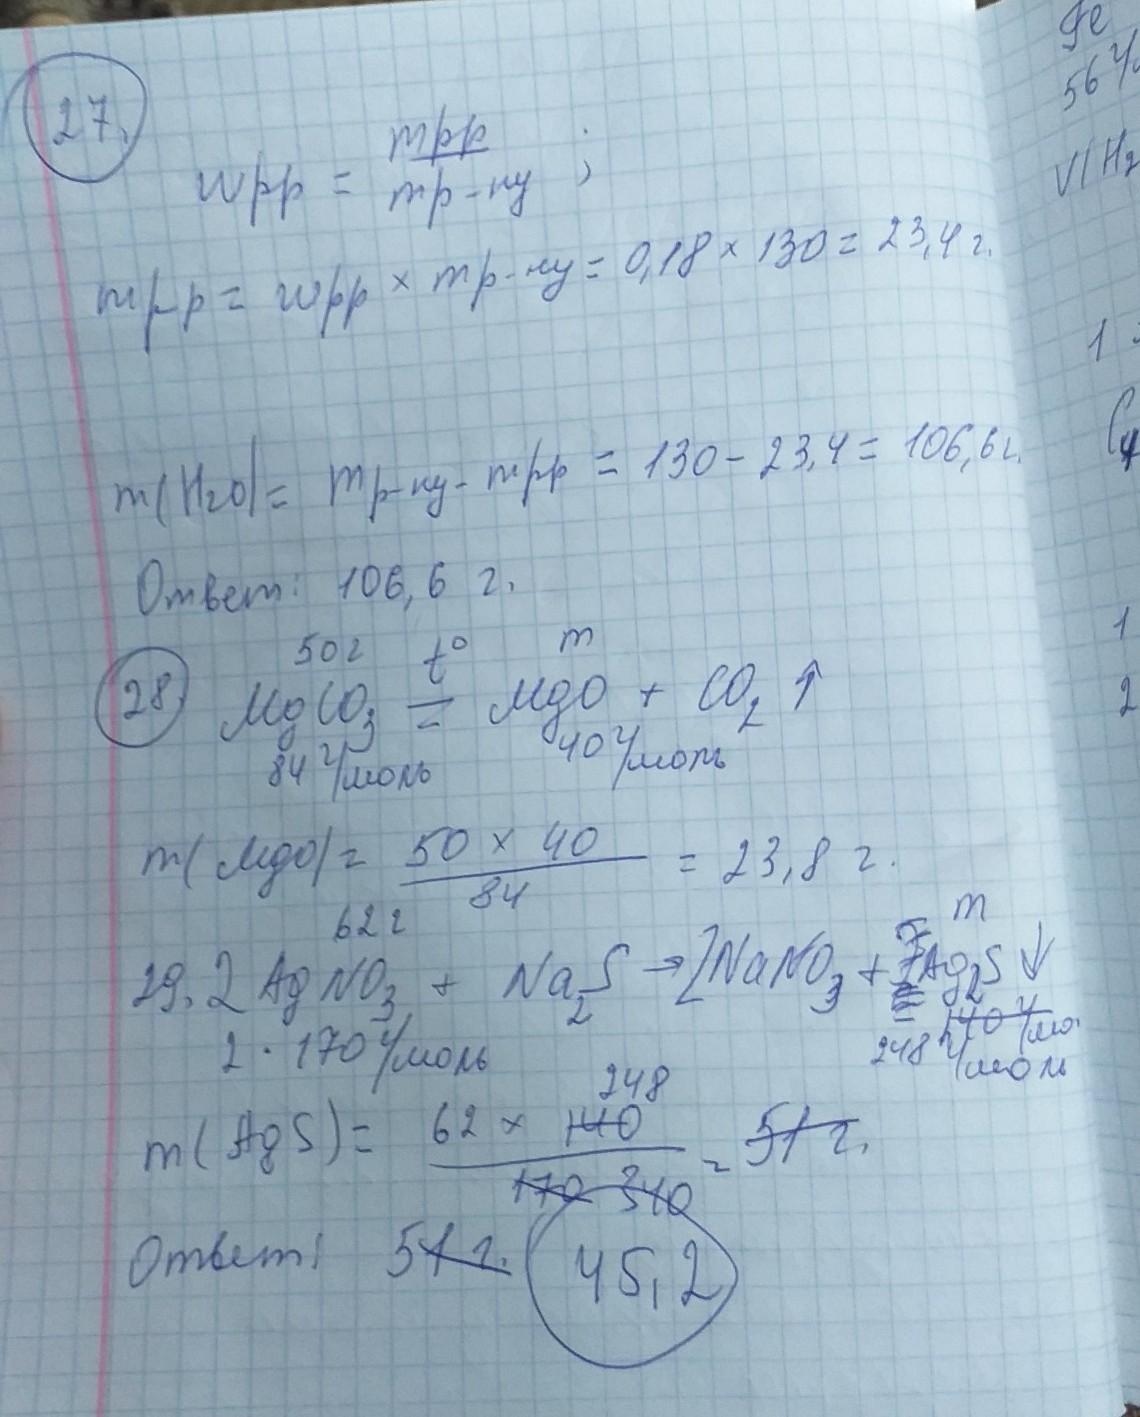 27.
wрр = mрр / mр-ну ;
mрр = wрр × mр-ну = 0,18 × 130 = 23,4 г.
m(H2O) = mр-ну - mрр = 130 - 23,4 = 106,6 г.
Ответ: 106,6 г.
50 г t° m
28 MgCO3 = MgO + CO2 ↑
84 г/моль 40 г/моль
m(MgO) = 50 × 40 / 84 = 23,8 г.
62 г m
29. 2 AgNO3 + Na2S → 2NaNO3 + Ag2S ↓
2 · 170 г/моль 248 г/моль 140 г/мо.
248
m(AgS) = 62 × 140 / 170 340 = 51 г.
Ответ: 51 г. 45,2
Fe
56 г/
V(H2
1
1
2